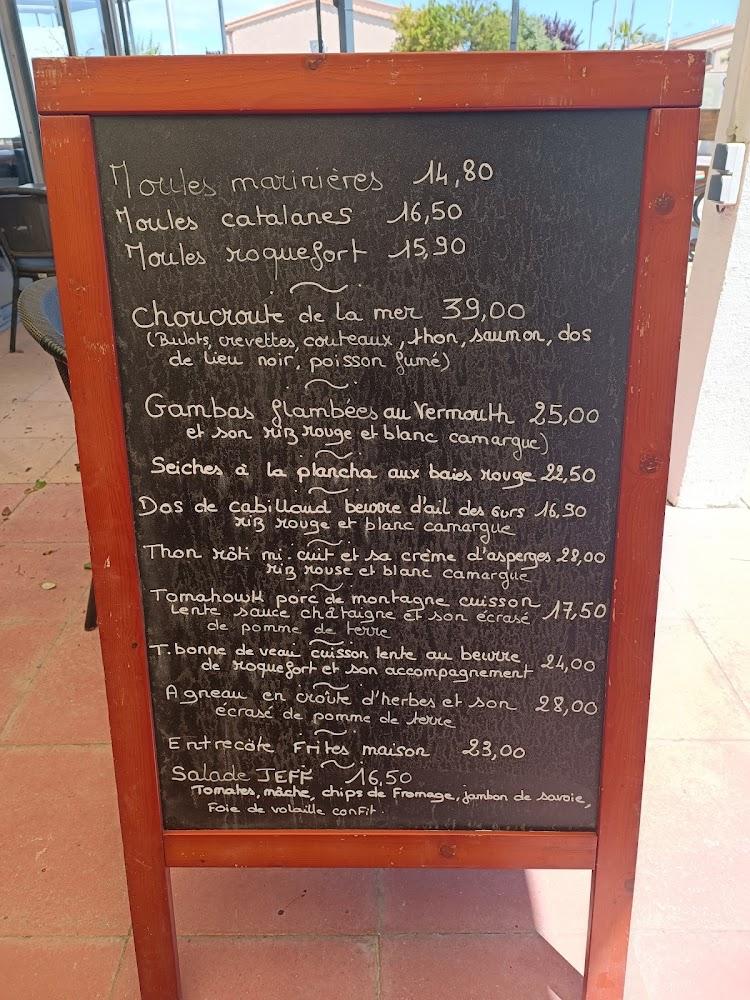 Moules marinières 14,80
Moules catalanes 16,50
Moules roquefort 15,90
Choucroute de la mer 39,00
(Bulots, crevettes, couteaux, thon, saumon, dos
de lieu noir, poisson fumé)
Gambas flambées au Vermouth 25,00
et son riz rouge et blanc camargue)
Seiches à la plancha aux baies rouge 22,50
Dos de cabillaud beurre d'ail des ours 16,90
riz rouge et blanc camargue
Thon rôti mi-cuit et sa crème d'asperges 28,00
riz rouse et blanc camargue
Tomahowk porc de montagne cuisson
lente sauce châtaigne et son écrasé 17,50
de pomme de terre
T.bonne de veau cuisson lente au beurre
de roquefort et son accompagnement 24,00
Agneau en croûte d'herbes et son 28,00
écrasé de pomme de terre
Entrecôte Frites maison 23,00
Salade JEFF 16,50
Tomates, mâche, chips de Fromage, jambon de savoie,
Foie de volaille confit.